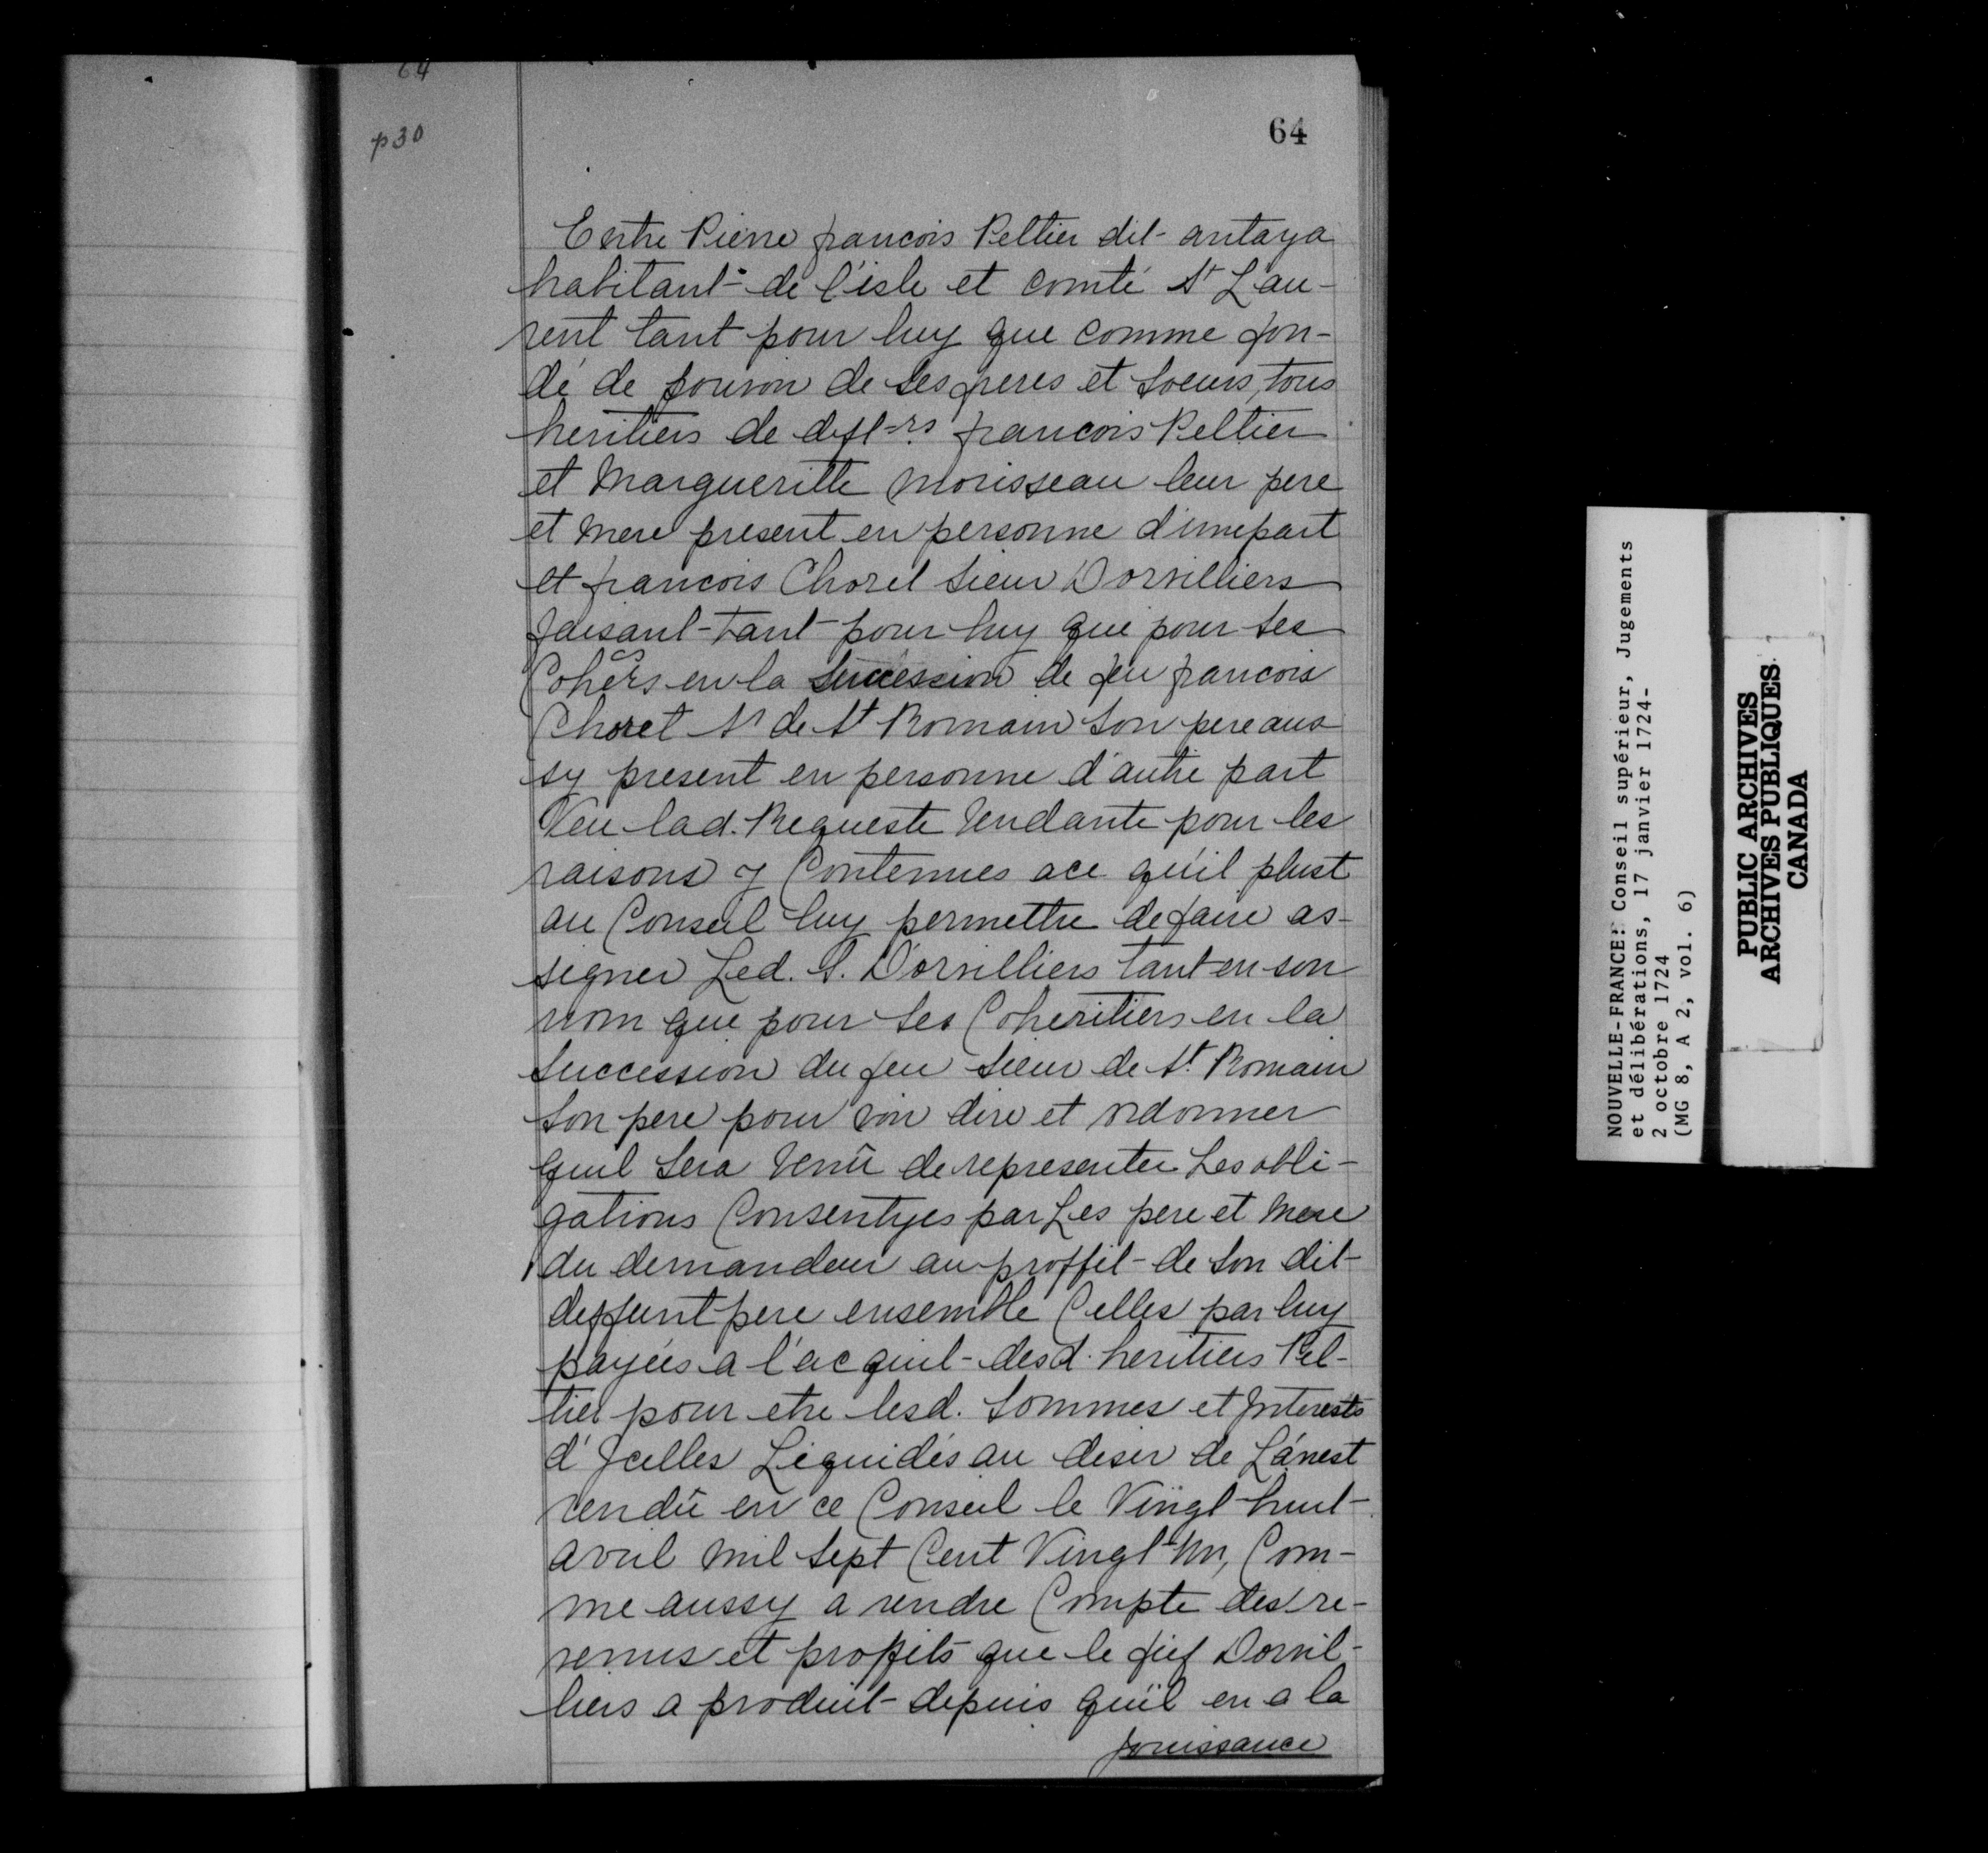 64
p30
64
Entre Pierre francois Peltier dit antaya
habitant de l'isle et comté St Lau-
rent tant pour luy que comme fon-
dé de pouvoir de ses freres et soeurs, tous
heritiers de deff-rs francois Peltier
et Margueritte Morisseau leur pere
et mere present en personne d'une part
et francois Chorel sieur Dorvilliers
faisant tant pour luy que pour ses
Cohers en la succession de feu francois
Chorel Sr de St Romain son pere aus
sy present en personne d'autre part
Veu lad. Requeste tendante pour les
raisons y Contenues ace qu'il plust
au Conseil luy permettre de faire as-
signer Led. S. Dorvilliers tant en son
nom que pour ses Coheritiers en la
succession du feu sieur de St. Romain
son pere pour voir dire et ordonner
quil sera tenû de representer Les obli-
gations Consentyes par Les pere et mere
du demandeur au proffit de son dit
deffunt pere ensemble Celles par luy
payées a l'acquit desd. heritiers Pel-
tier pour etre lesd. sommes et Interests
d'Icelles Liquidés au desir de L'arrest
rendû en ce Conseil le Vingt huit
avril mil sept Cent Vingt Un, Com-
me aussy a rendre Compte des re-
venus et proffits que le fief Dorvil-
liers a produit depuis qu'il en a la
jouissance
NOUVELLE-FRANCE: Conseil supérieur, Jugements
et délibérations, 17 janvier 1724-
2 octobre 1724
(MG 8, A 2, vol. 6)
PUBLIC ARCHIVES
ARCHIVES PUBLIQUES
CANADA